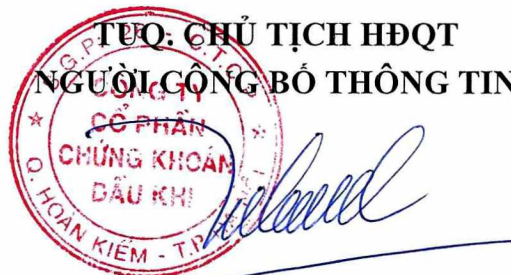 TUQ. CHỦ TỊCH HĐQT
NGƯỜI CÔNG BỐ THÔNG TIN
CÔNG TY
CỔ PHẦN
CHỨNG KHOÁN
DẦU KHÍ
Q. HOÀN KIẾM - T.P